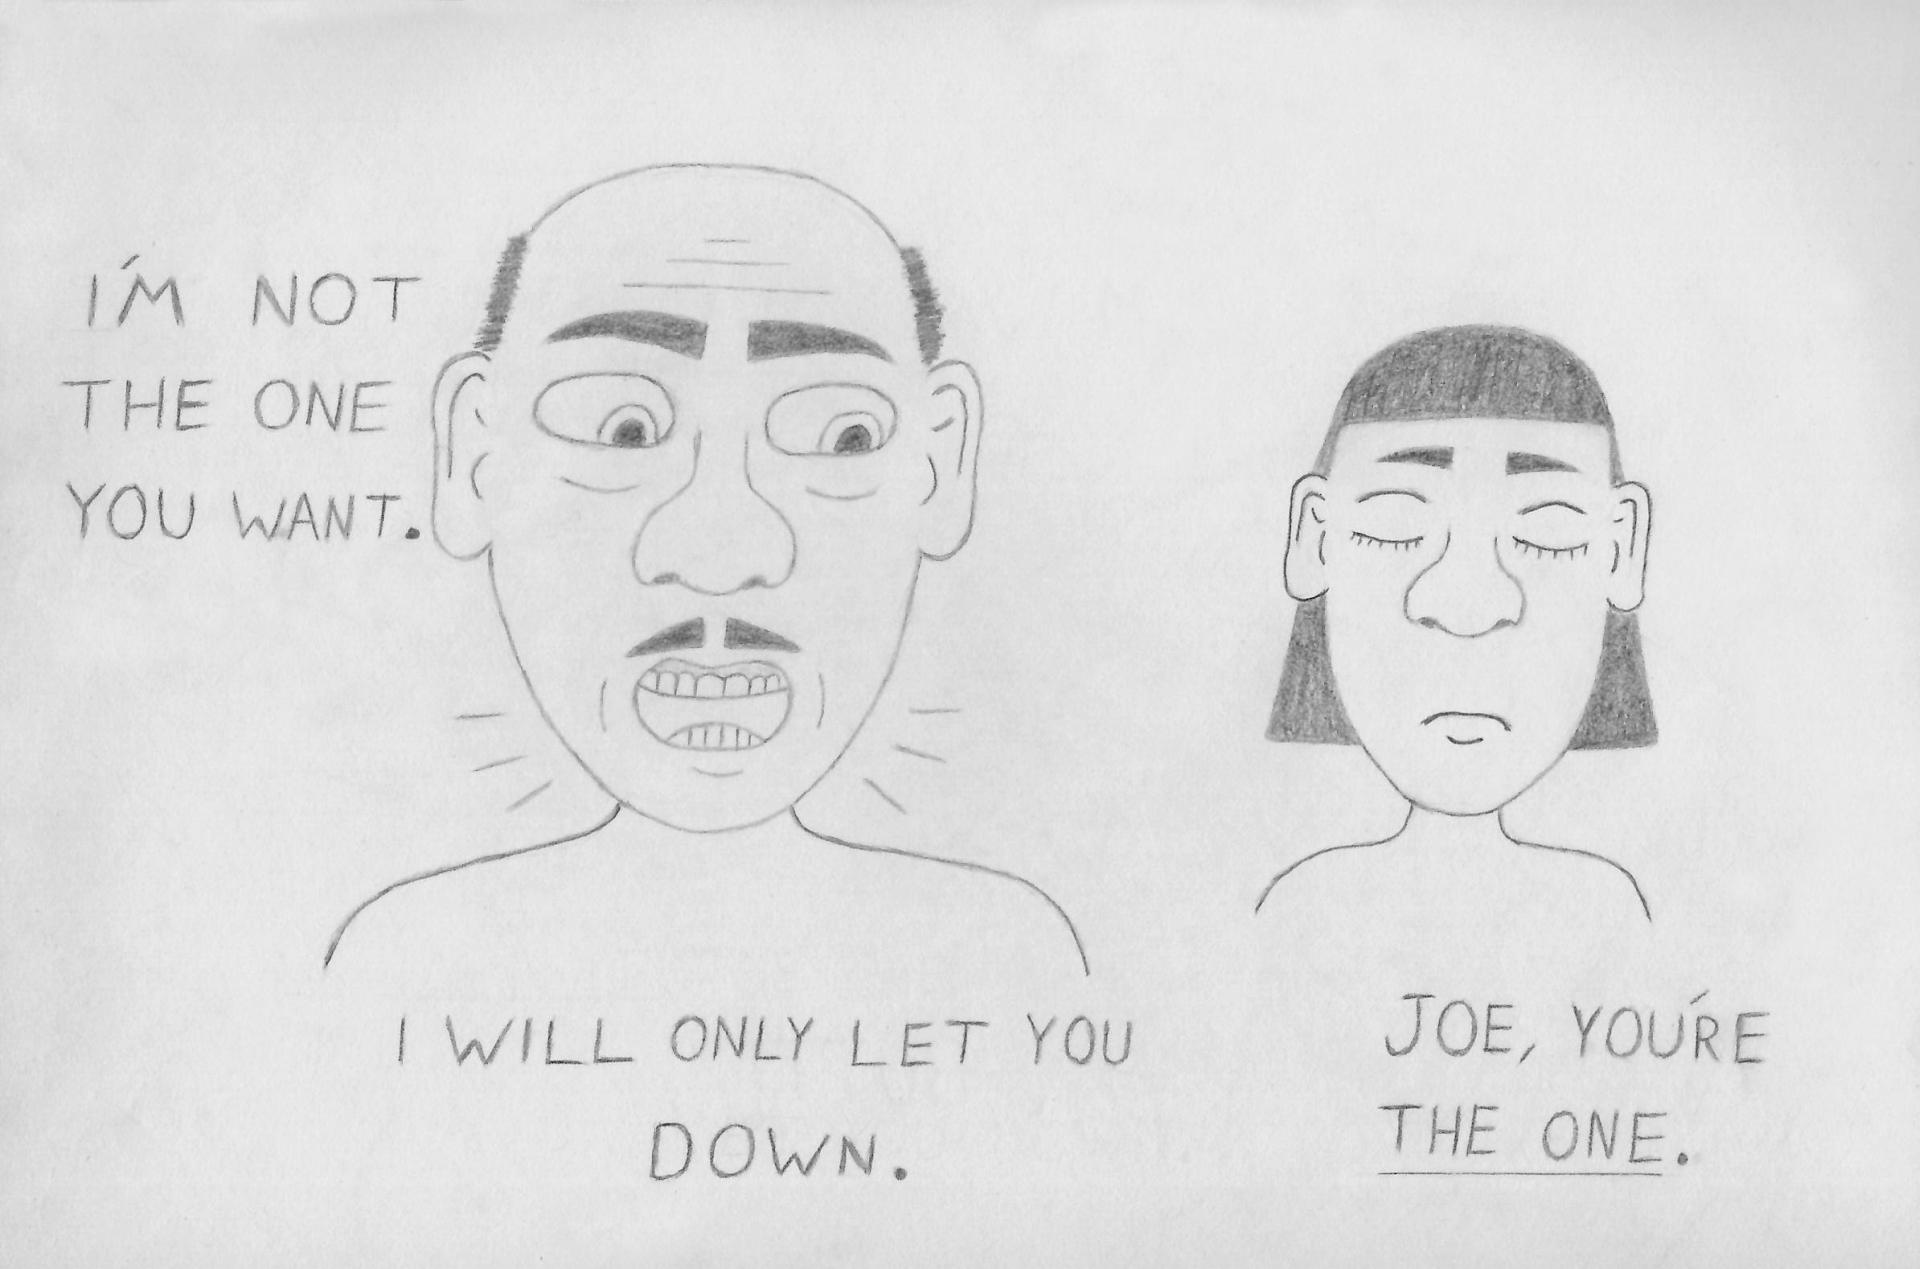 I'M NOT
THE ONE
YOU WANT.
I WILL ONLY LET YOU
DOWN.
JOE, YOU'RE
THE ONE.